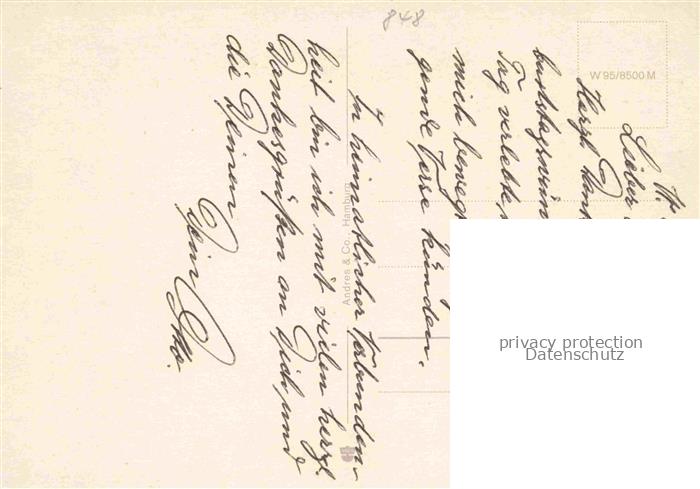 848
W 95/8500 M
H.
Lieber
Herzl. Dank
burtstagswün
Tag verlebte
mich bewegt
gende Verse künden.
In heimatlicher Verbunden-
heit bin ich mit vielen herzl.
Dankesgrüßen an Dich und
die Deinen
Dein Otto.
Andres & Co., Hamburg
privacy protection
Datenschutz